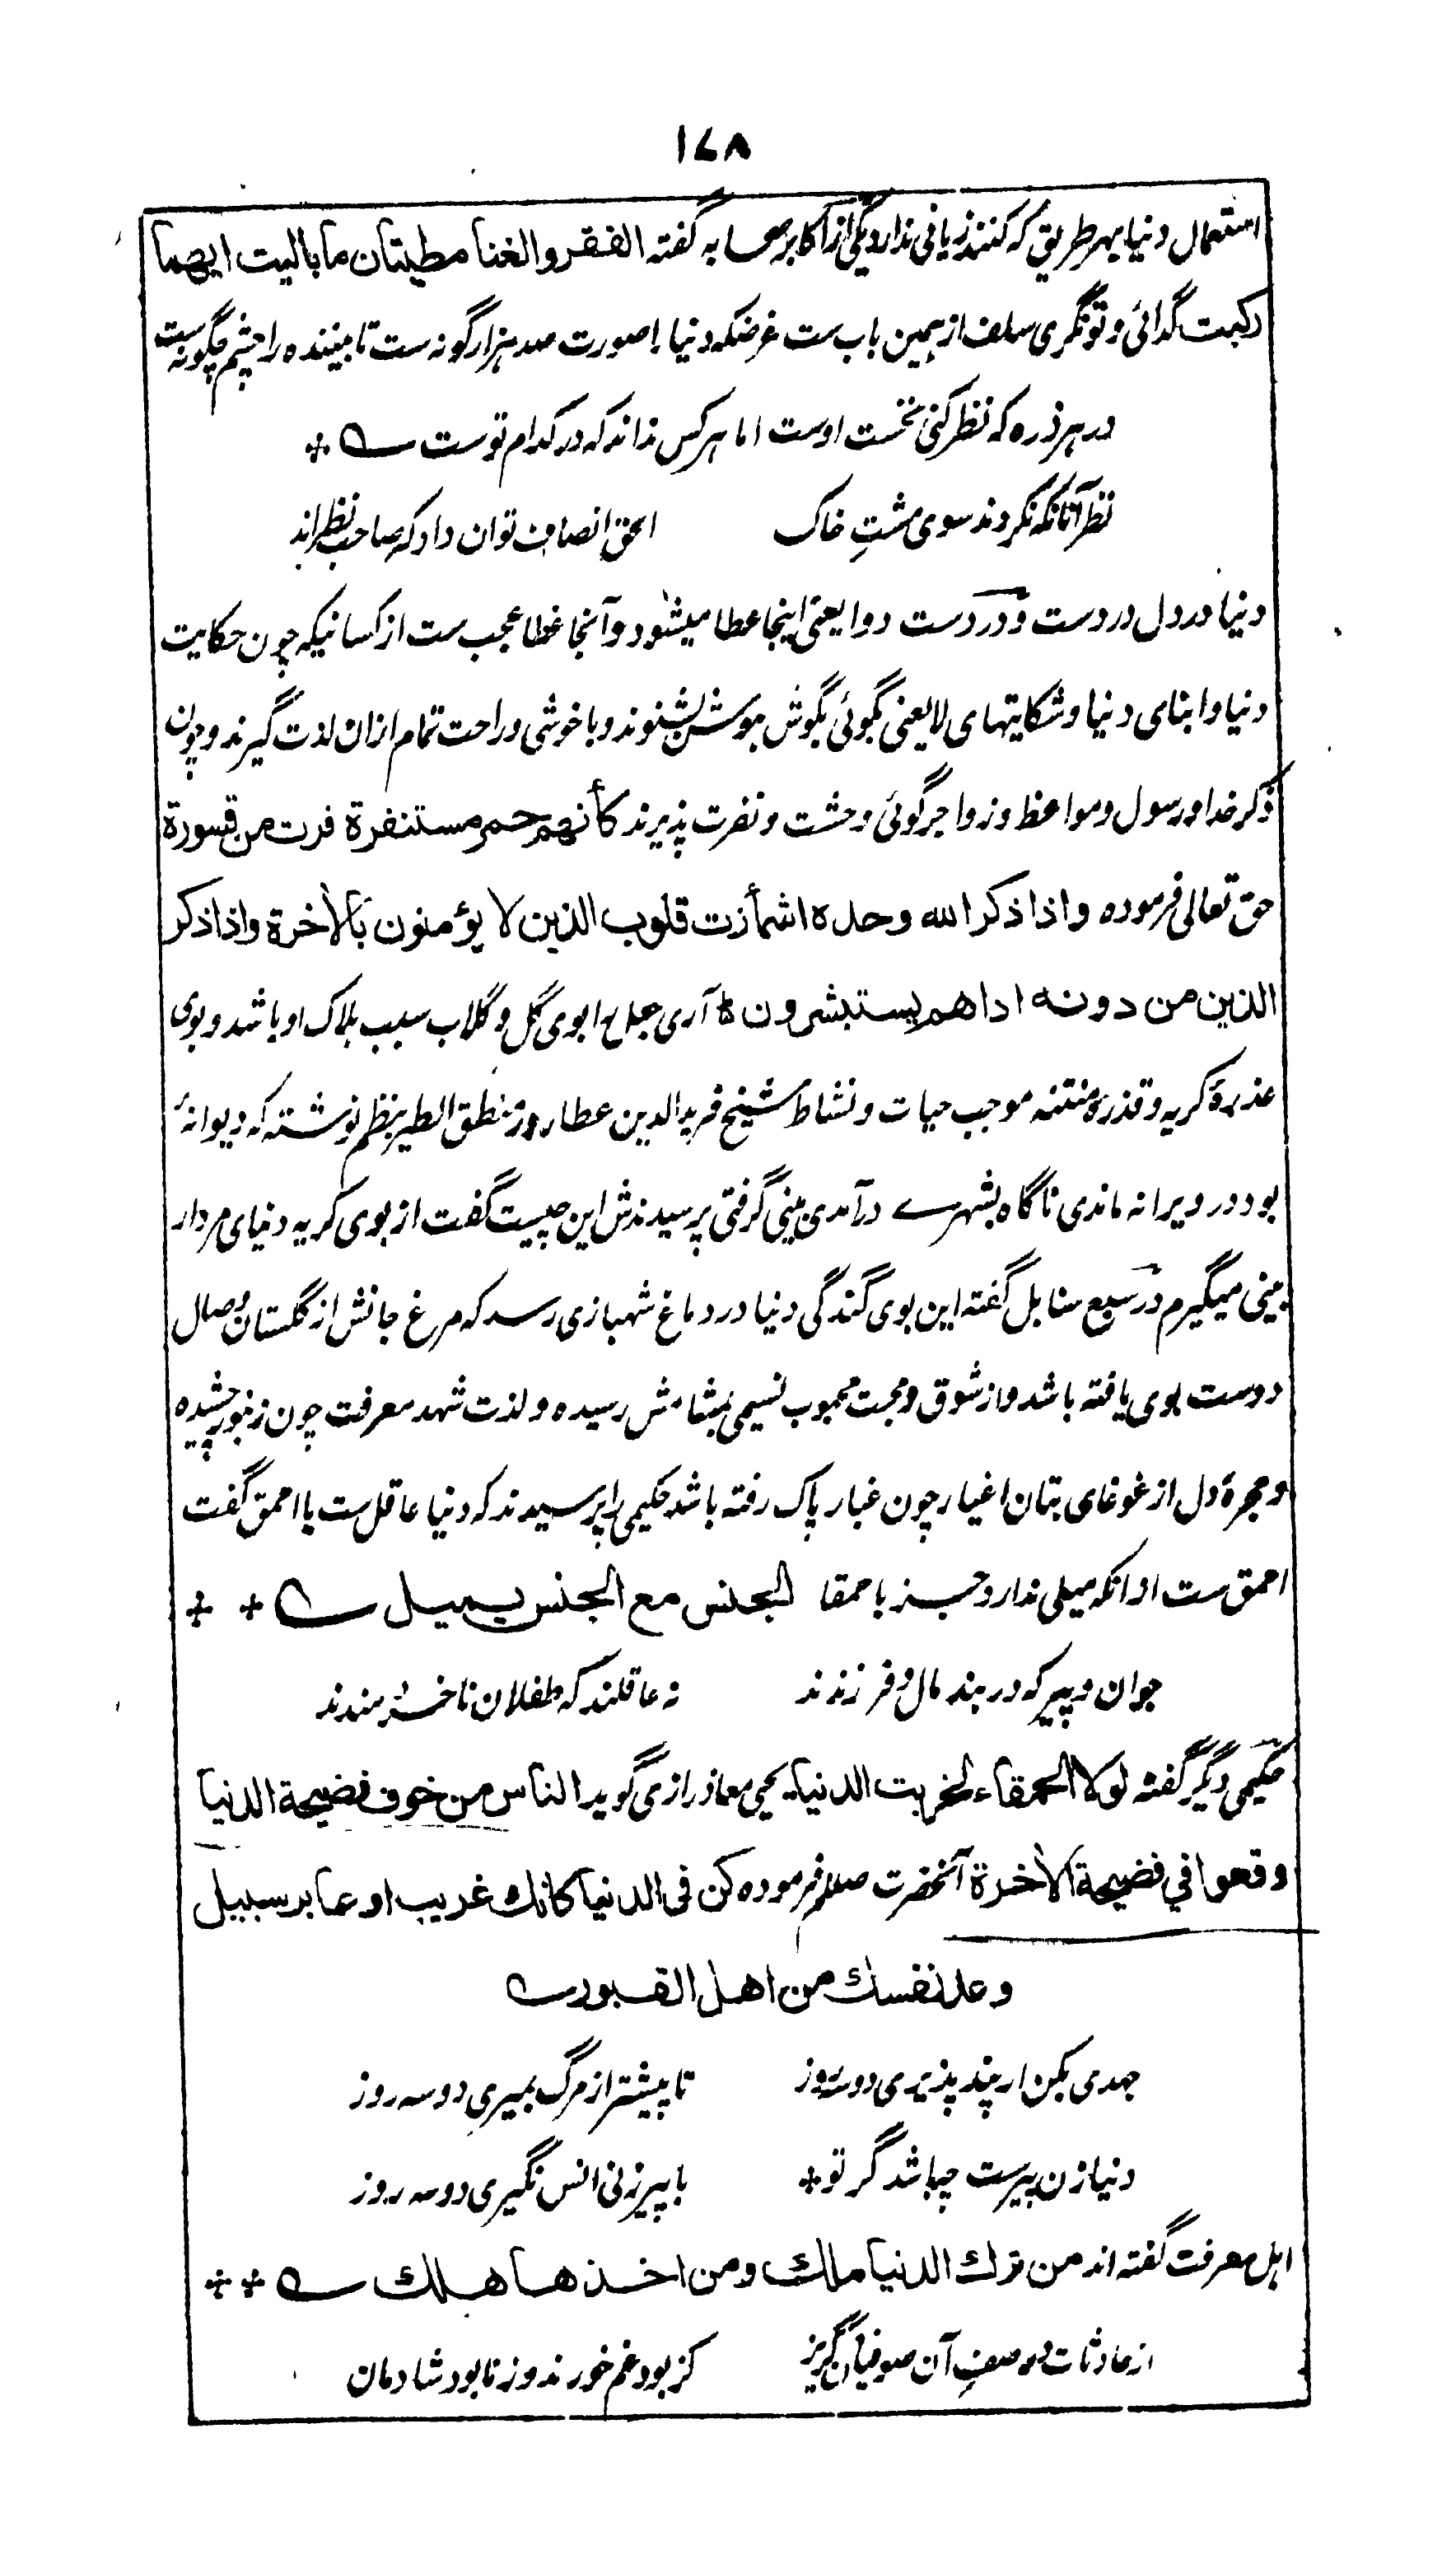 ۱۷۸
استعمال دنیا بهر طریق که کنند زیانی ندارد یکی از اکابر صحابه گفته الفقر والغنا مطیتان ما بالیت ایهما
رکبت گدائی و تونگری سلف از همین باب ست غرضکه دنیا با صورت صد هزار گونه ست تا بیننده را چشم چگونه ست
در هر ذره که نظر کنی نخست اوست اما هر کس نداند که در کدام توست ؎ *
نظر آنانکه نکردند سوی مشتِ خاک الحق انصاف توان داد که صاحب نظراند
دنیا در دل دردست و در دست دوا یعنی اینجا عطا میشود و آنجا غطا عجب ست از کسانیکه چون حکایت
دنیا و ابنای دنیا و شکایتهای لایعنی بگوئی بگوش هوش بشنوند و با خوشی و راحت تمام ازان لذت گیرند و چون
ذکر خدا و رسول و مواعظ و زواجر گوئی وحشت و نفرت پذیرند كأنهم حمر مستنفرة فرت من قسورة
حق تعالی فرموده واذا ذكر الله وحده اشمأزت قلوب الذين لا يؤمنون بالأخرة واذا ذكر
الذين من دونه اذا هم يستبشرون ه آری جعل را بوی گل و گلاب سبب هلاک او باشد و بوی
عذرهٔ کریه و قذرهٔ منتنه موجب حیات و نشاط شیخ فرید الدین عطار در منطق الطیر بنظم نوشته که دیوانهٔ
بود در ویرانه ماندی ناگاه بشهرے درآمدی بینی گرفتی پرسیدندش این چیست گفت از بوی کریه دنیای مردار
بینی میگیرم در سبع سنابل گفته این بوی گندگی دنیا در دماغ شهبازی رسد که مرغ جانش از گلستان وصال
دوست بوی یافته باشد و از شوق و محبت محبوب نسیمی بمشامش رسیده و لذت شهد معرفت چون زنبور چشیده
و حجرهٔ دل از غوغای بتان اغیار چون غبار پاک رفته باشد حکیمی را پرسیدند که دنیا عاقل ست یا احمق گفت
احمق ست از انکه میلی ندارد جز با حمقا الجنس مع الجنس يميل ؎ * *
جوان و پیر که در بند مال و فرزندند نه عاقلند که طفلان ناخردمندند
حکیمی دیگر گفته لولا الحمقاء لخربت الدنيا یحیی معاذ رازی گوید الناس من خوف فضيحة الدنيا
وقعوا في فضيحة الأخرة آنحضرت صلعم فرموده كن في الدنيا كانك غريب او عابر سبيل
وعد نفسك من اهل القبور ؎
جهدی بکن ار پند پذیری دو سه روز تا پیشتر از مرگ بمیری دو سه روز
دنیا زن پیرست چه باشد گر تو * با پیرزنی انس نگیری دو سه روز
اهل معرفت گفته اند من ترك الدنيا ملك ومن اخذها هلك ؎ * *
از حادثات در صفِ آن صوفیان گریز کز بود غم خورند و ز نابود شادمان